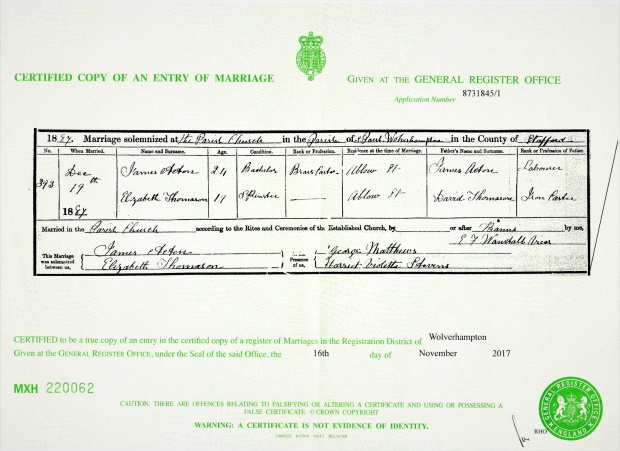 CERTIFIED COPY OF AN ENTRY OF MARRIAGE
GIVEN AT THE GENERAL REGISTER OFFICE
Application Number 8731845/1
1887. Marriage solemnized at the Parish Church in the Parish of St Paul Wolverhampton in the County of Stafford
No. When Married. Name and Surname. Age. Condition. Rank or Profession. Residence at the time of Marriage. Father's Name and Surname. Rank or Profession of Father.
393 Dec 19th 1887
James Acton 24 Bachelor Brass Caster Ablow St James Acton Labourer
Elizabeth Thomason 17 Spinster — Ablow St David Thomason Iron Caster
Married in the Parish Church according to the Rites and Ceremonies of the Established Church, by or after Banns by me,
This Marriage was solemnized between us, James Acton Elizabeth Thomason
Presence of us, George Matthews Harriet Violetta Stevens
E. F. Vicar
CERTIFIED to be a true copy of an entry in the certified copy of a register of Marriages in the Registration District of Wolverhampton
Given at the GENERAL REGISTER OFFICE, under the Seal of the said Office, the 16th day of November 2017
MXH 220062
CAUTION: THERE ARE OFFENCES RELATING TO FALSIFYING OR ALTERING A CERTIFICATE AND USING OR POSSESSING A
FALSE CERTIFICATE. © CROWN COPYRIGHT
WARNING: A CERTIFICATE IS NOT EVIDENCE OF IDENTITY.
GENERAL REGISTER OFFICE
ENGLAND
RHO